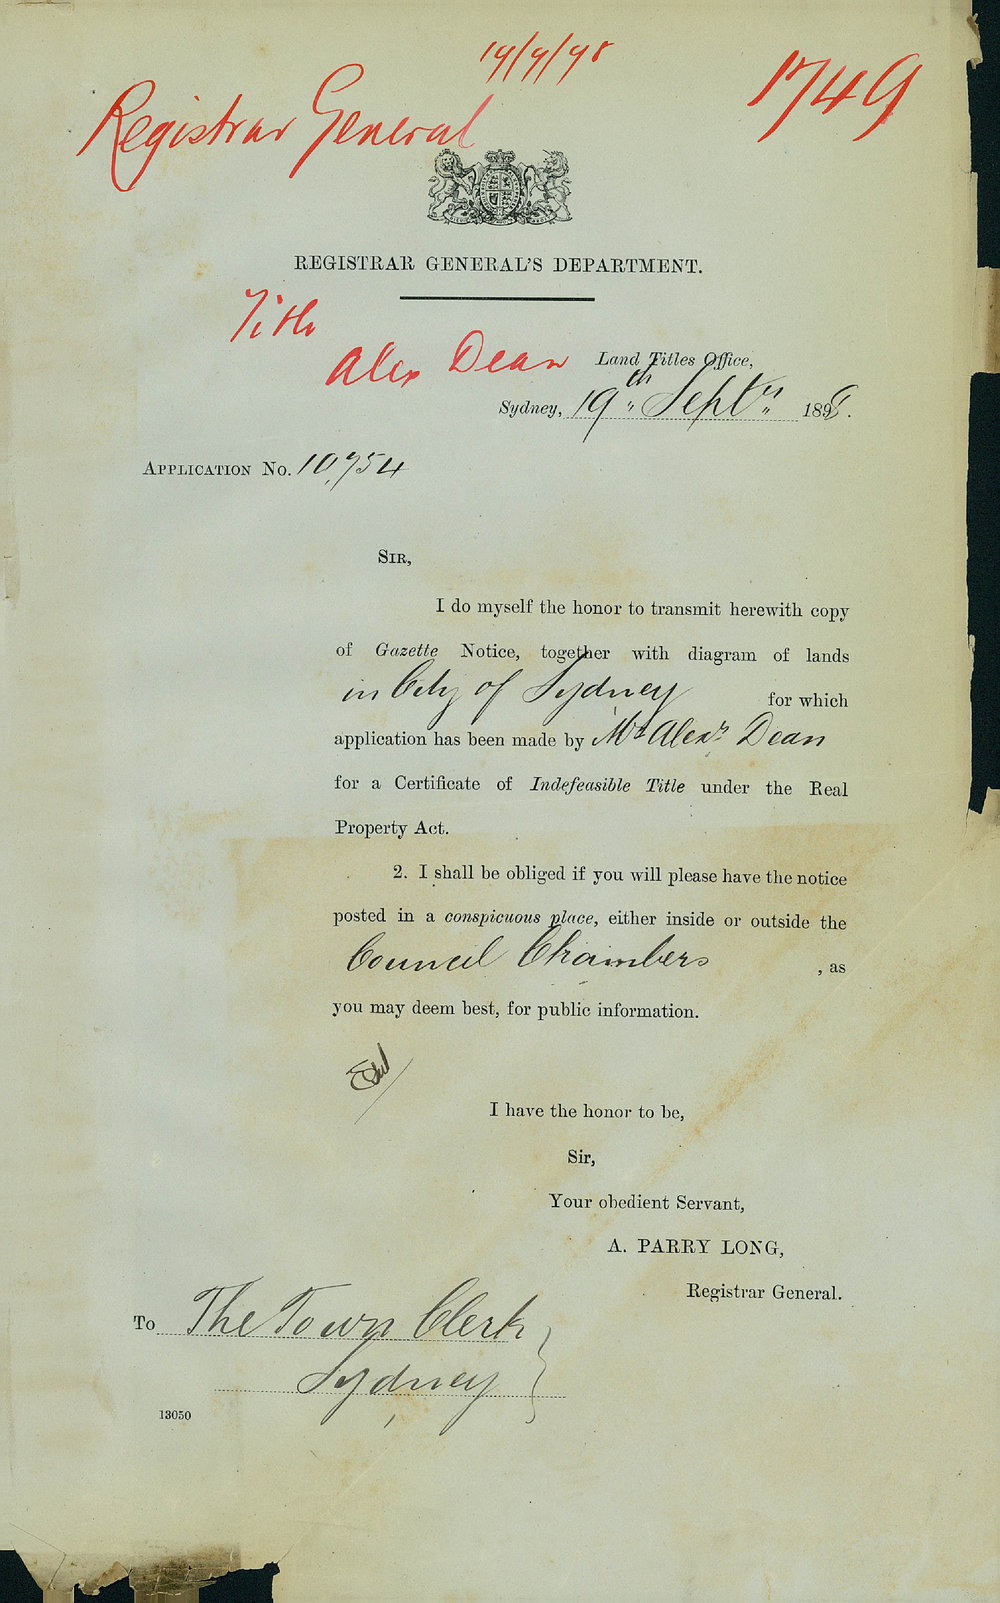 19/9/98
1749
Registrar General
REGISTRAR GENERAL'S DEPARTMENT.
Title
Alex Dean
Land Titles Office,
Sydney, 19th Septr 1898.
APPLICATION No. 10,754
SIR,
I do myself the honor to transmit herewith copy
of Gazette Notice, together with diagram of lands
in City of Sydney for which
application has been made by Mr Alexr Dean
for a Certificate of Indefeasible Title under the Real
Property Act.
2. I shall be obliged if you will please have the notice
posted in a conspicuous place, either inside or outside the
Council Chambers, as
you may deem best, for public information.
I have the honor to be,
Sir,
Your obedient Servant,
A. PARRY LONG,
Registrar General.
To The Town Clerk
Sydney
13050